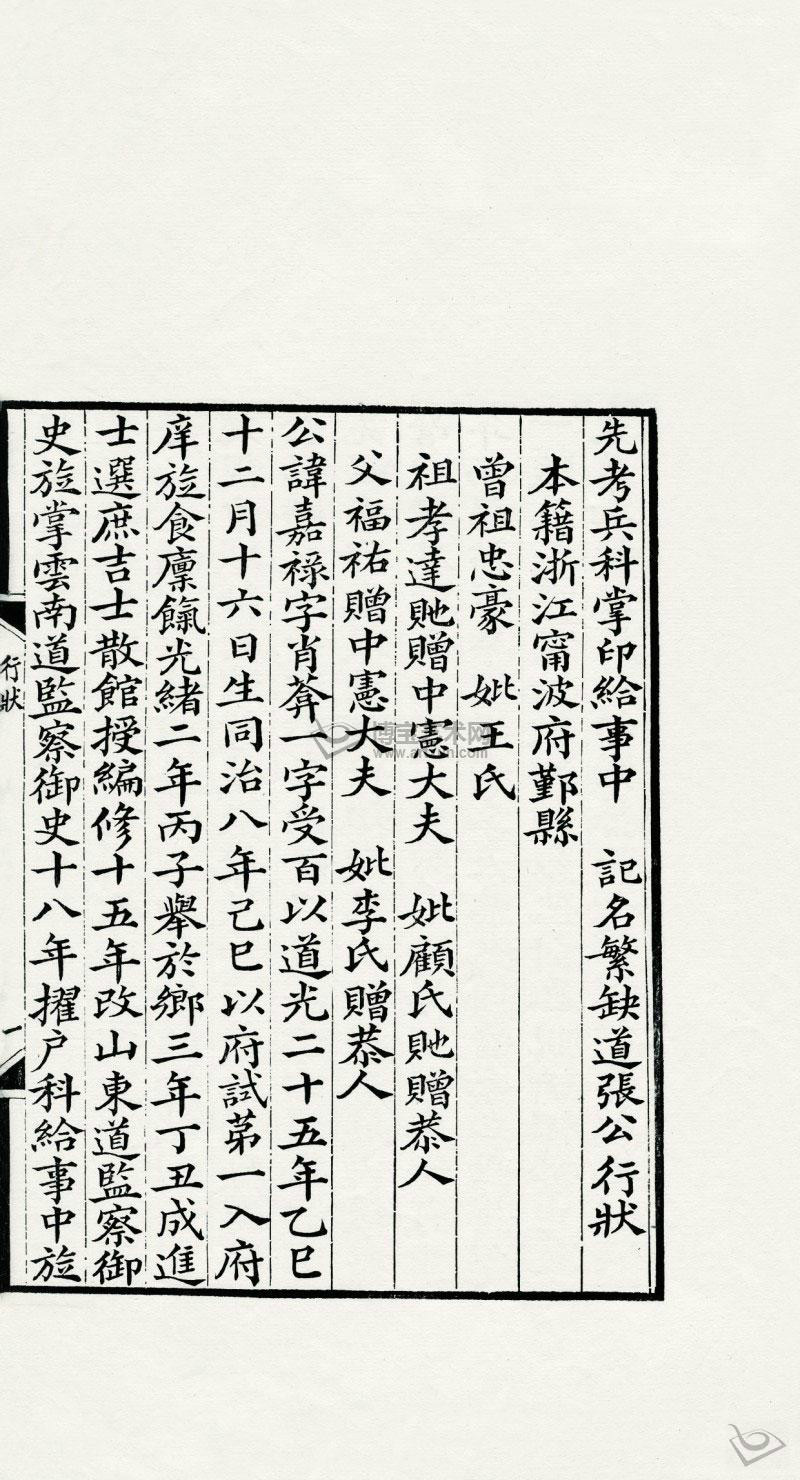 先考兵科掌印給事中 記名繁缺道張公行狀
本籍浙江甯波府鄞縣
曾祖忠豪 妣王氏
祖孝達貤贈中憲大夫 妣顧氏貤贈恭人
父福祐贈中憲大夫 妣李氏贈恭人
公諱嘉祿字肖葊一字受百以道光二十五年乙巳
十二月十六日生同治八年己巳以府試第一入府
庠旋食廩餼光緒二年丙子舉於鄉三年丁丑成進
士選庶吉士散館授編修十五年改山東道監察御
史旋掌雲南道監察御史十八年擢户科給事中旋
行狀
一
博宝艺术网